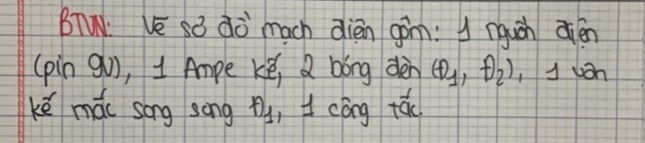 BTVN: Vẽ sơ đồ mạch điện gồm: 1 nguồn điện
(pin 9V), 1 Ampe kế, 2 bóng đèn (Đ1, Đ2), 1 vôn
kế mắc song song Đ1, 1 công tắc.